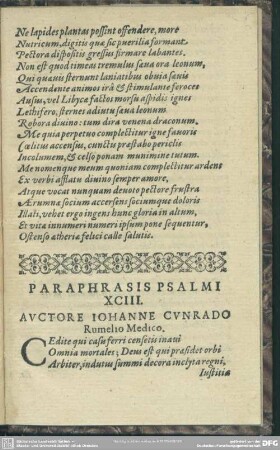 Ne lapides plantas possint offendere, more
Nutricum, digitis quæ sic puerilia formant
Pectora dispositis gressus firmare labantes.
Non est quod timeas tremulus sæva ora leonum,
Qui quamvis sternunt laniatibus obvia sævis
Accendente animos irâ & stimulante feroces
Ausus, vel Libyca factos morsu aspidis ignes
Lethifero, sternes adiutu sæva leonum
Robora divino: tum dira venena draconum.
Me quia perpetuo complectitur igne favoris
Cœlitus accensus, cunctis præstabo periclis
Incolumem, & celso ponam munimine tutum.
Me nomenque meum quoniam complectitur ardens
Ex verbi afflatu divino semper amore,
Atque vocat nunquam devoto pectore frustra
Ærumna socium accersens sociumque doloris
Illati, vehet ergo ingens hunc gloria in altum,
Et vita innumeri numeri ipsum pone sequentur,
Ostenso ætheria felici calle salutis.
PARAPHRASIS PSALMI
XCIII.
AVCTORE IOHANNE CVNRADO
Rumelio Medico.
CEdite qui casu ferri censetis inani
Omnia mortales; Deus est qui præsidet orbi
Arbiter, indutus summi decora inclyta regni,
Iustitia